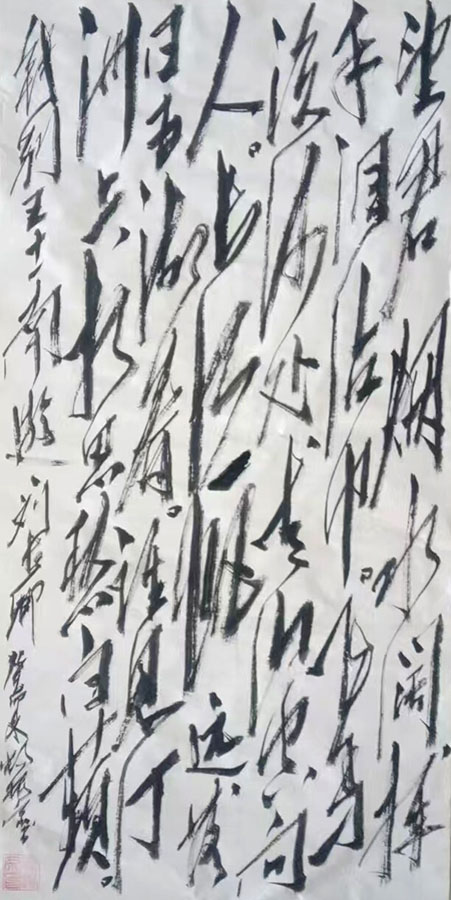 望君烟水阔挥
手泪沾巾。飞鸟
没何处青山空向
人。长江一帆远落
日五湖春。谁见汀
洲上相思愁白蘋。
饯别王十一南游 刘长卿